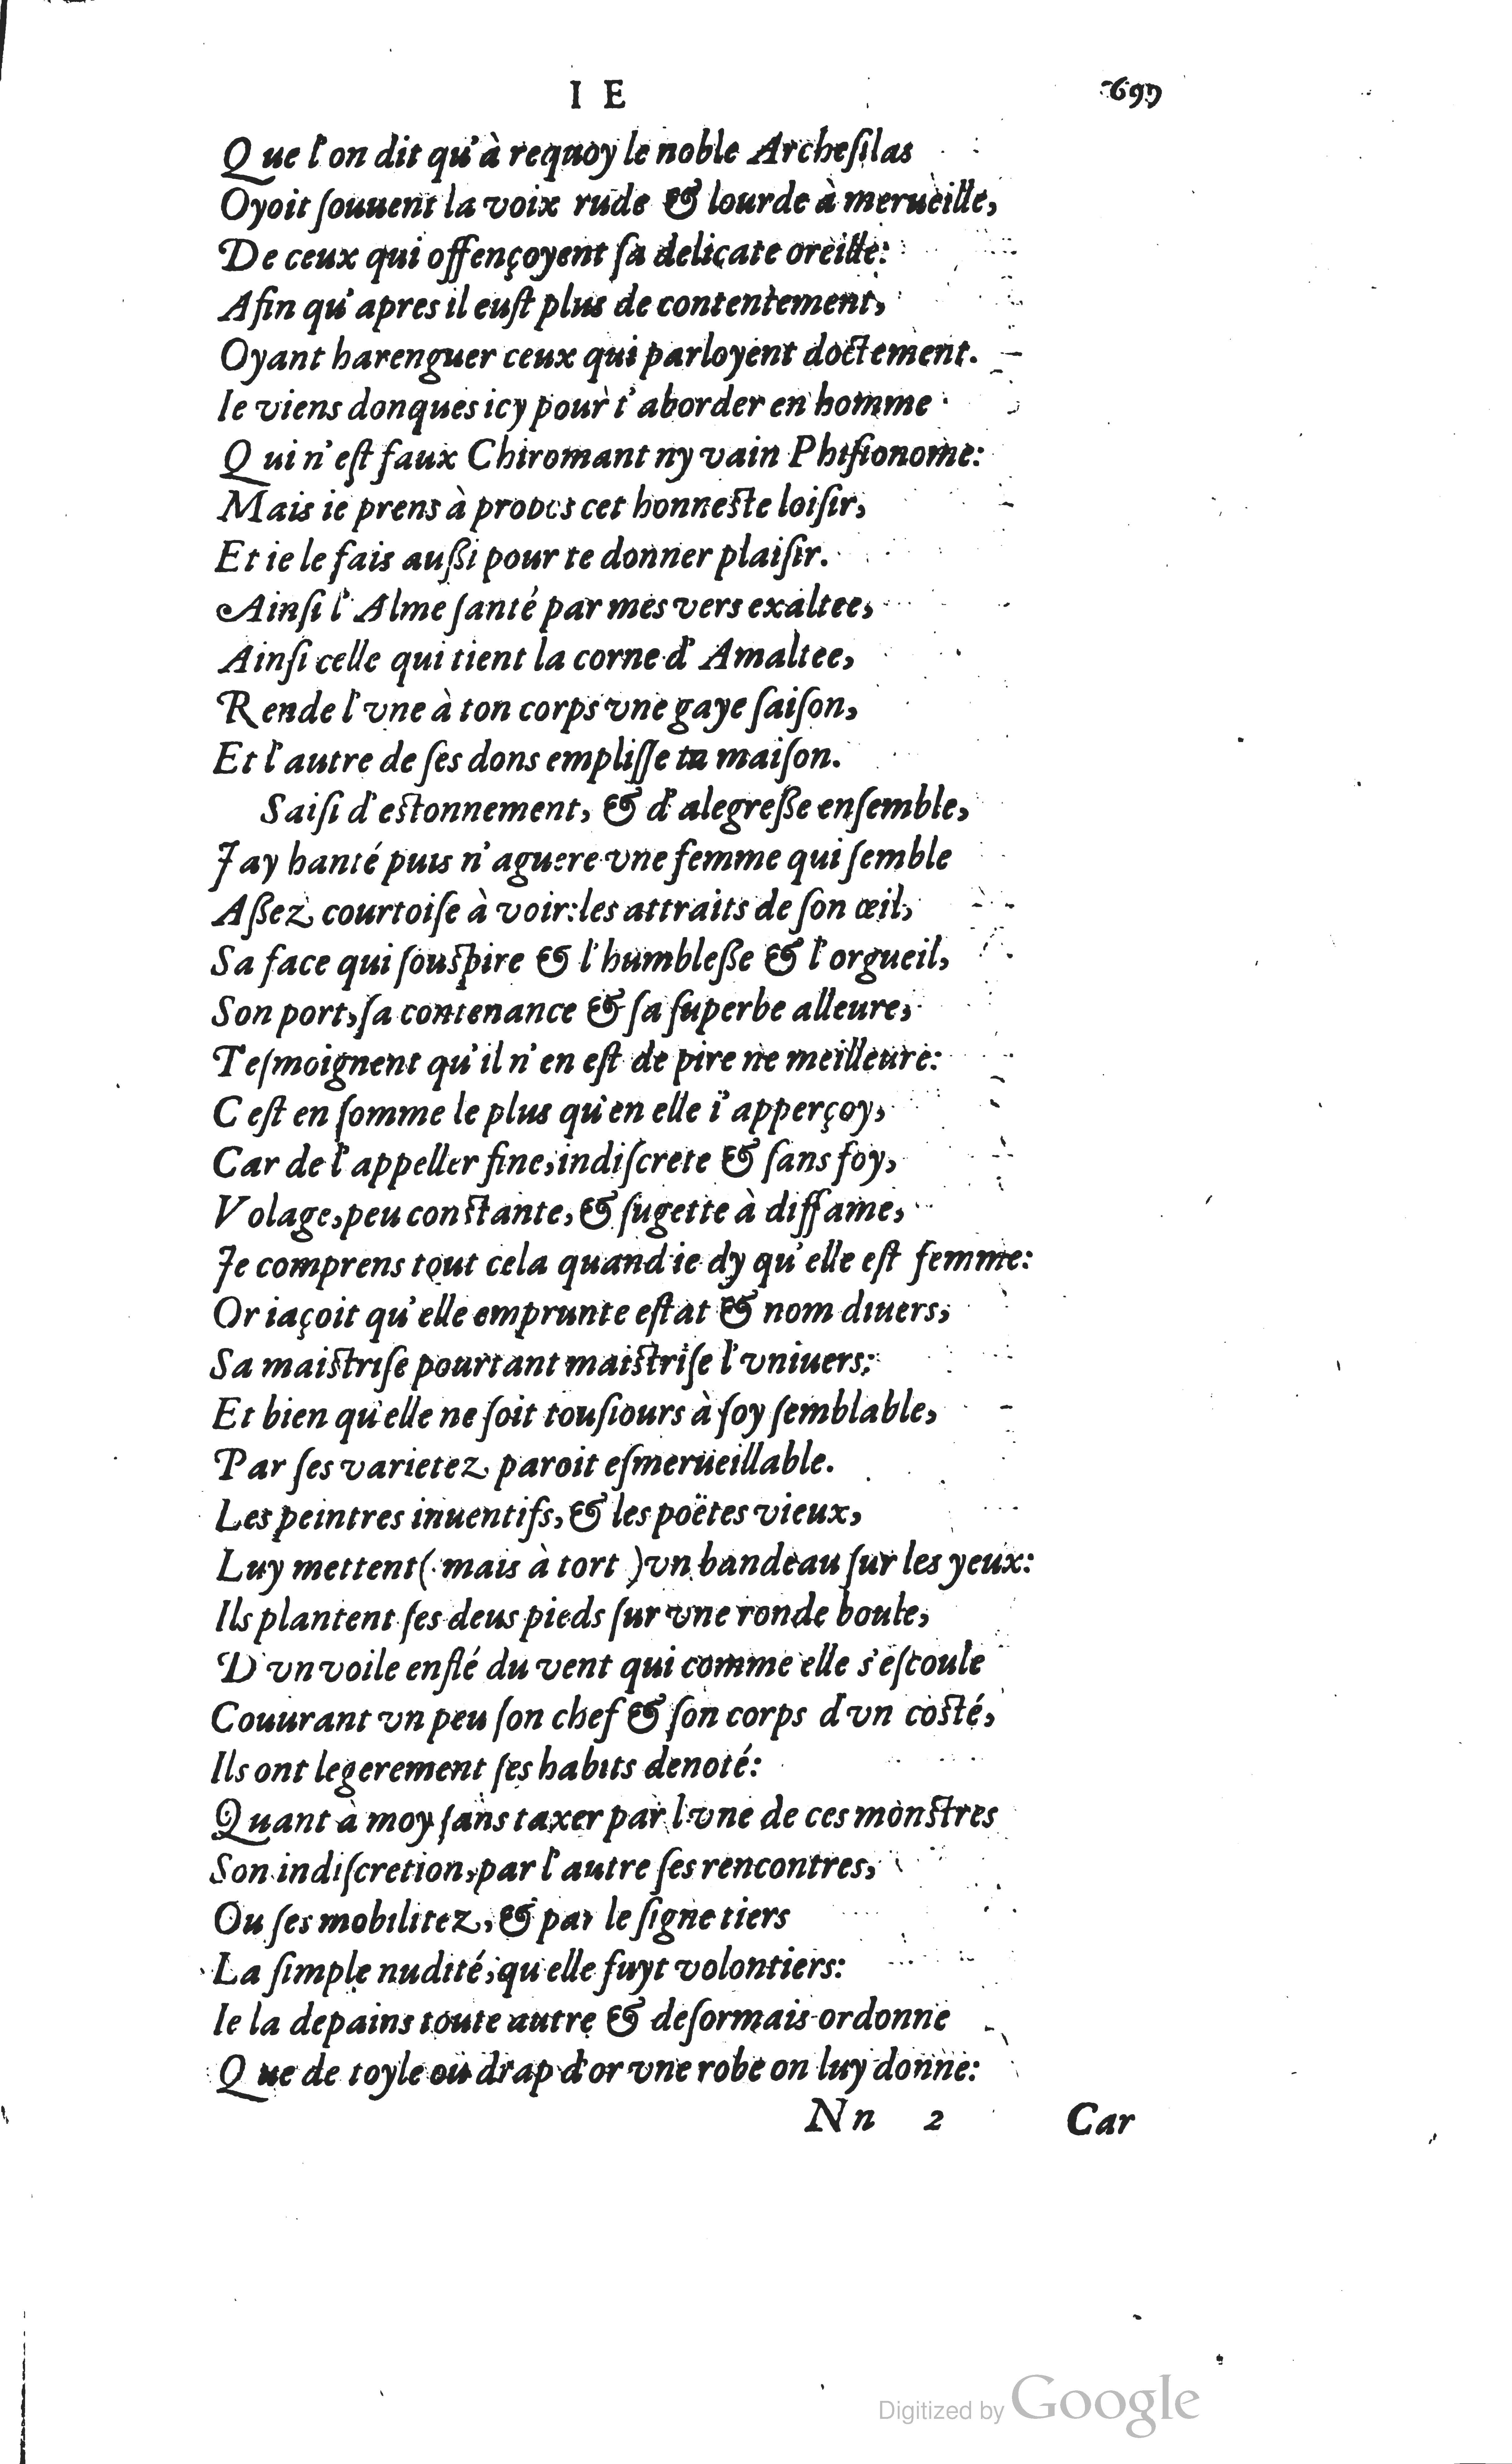 I E 697
Que l'on dit qu'à requoy le noble Archeſilas
Oyoit ſouuent la voix rude & lourde à merueille,
De ceux qui offençoyent ſa delicate oreille:
Afin qu'apres il euſt plus de contentement,
Oyant harenguer ceux qui parloyent doctement.
Ie viens donques icy pour t'aborder en homme
Qui n'eſt faux Chiromant ny vain Phiſionome:
Mais ie prens à propos cet honneſte loiſir,
Et ie le fais auſſi pour te donner plaiſir.
Ainſi l'Alme ſanté par mes vers exaltee,
Ainſi celle qui tient la corne d'Amaltee,
Rende l'vne à ton corps vne gaye ſaiſon,
Et l'autre de ſes dons empliſſe ta maiſon.
Saiſi d'eſtonnement, & d'alegreſſe enſemble,
J'ay hanté puis n'aguere vne femme qui ſemble
Aſſez courtoiſe à voir: les attraits de ſon œil,
Sa face qui ſouſpire & l'humbleſſe & l'orgueil,
Son port, ſa contenance & ſa ſuperbe alleure,
Teſmoignent qu'il n'en eſt de pire ne meilleure:
C'eſt en ſomme le plus qu'en elle i'apperçoy,
Car de l'appeller fine, indiſcrete & ſans foy,
Volage, peu conſtante, & ſugette à diffame,
Je comprens tout cela quand ie dy qu'elle eſt femme:
Or iaçoit qu'elle emprunte eſtat & nom diuers,
Sa maiſtriſe pourtant maiſtriſe l'vniuers:
Et bien qu'elle ne ſoit touſiours à ſoy ſemblable,
Par ſes varietez paroit eſmerueillable.
Les peintres inuentifs, & les poëtes vieux,
Luy mettent (mais à tort) vn bandeau ſur les yeux:
Ils plantent ſes deus pieds ſur vne ronde boule,
D'vn voile enflé du vent qui comme elle s'eſcoule
Couurant vn peu ſon chef & ſon corps d'vn coſté,
Ils ont legerement ſes habits denoté:
Quant à moy ſans taxer par l'vne de ces monſtres
Son indiſcretion, par l'autre ſes rencontres,
Ou ſes mobilitez, & par le ſigne tiers
La ſimple nudité, qu'elle fuyt volontiers:
Ie la depains toute autre & deſormais ordonne
Que de toyle ou drap d'or vne robe on luy donne:
Nn 2 Car
Digitized by Google